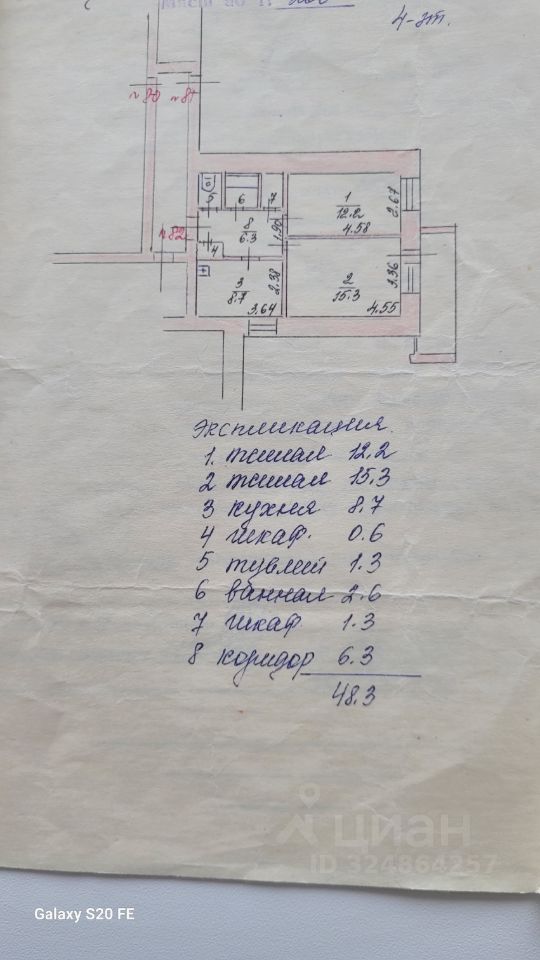 4-эт.
№80
№81
№82
5
6
7
8
6.3
1.90
4
1
12.2
4.58
2.67
3
8.7
2.38
3.64
2
15.3
3.36
4.55
Экспликация.
1. жилая 12.2
2 жилая 15.3
3 кухня 8.7
4 шкаф. 0.6
5 туалет 1.3
6 ванная 2.6
7 шкаф 1.3
8 коридор 6.3
48.3
циан
ID 324864257
Galaxy S20 FE